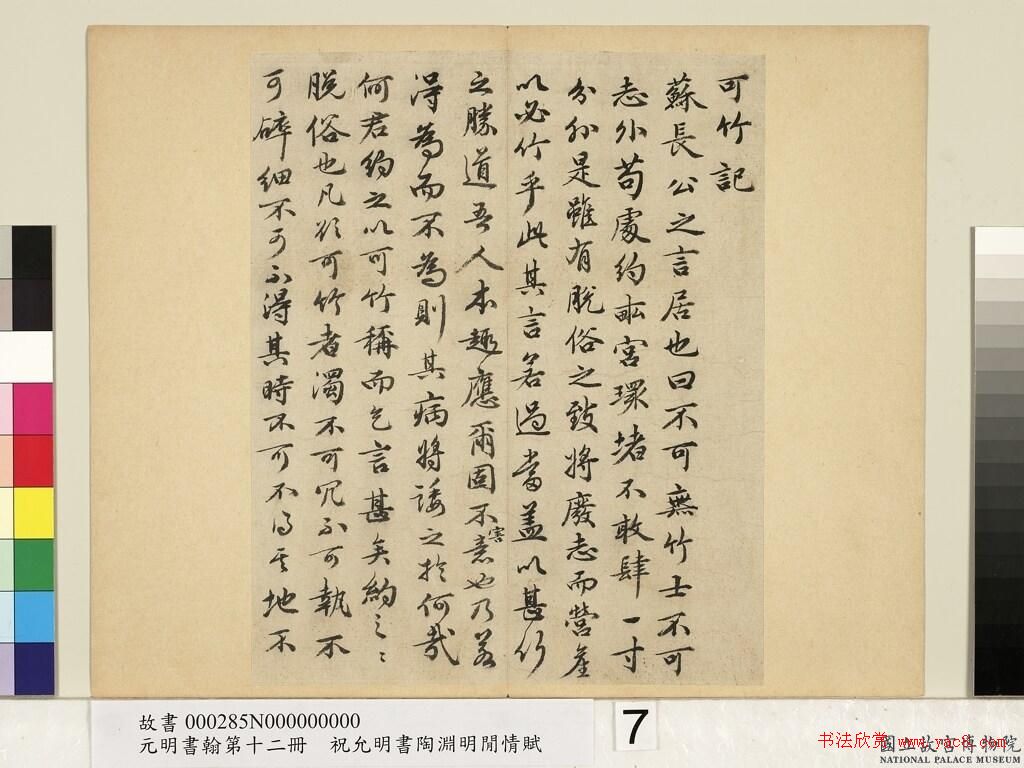 可竹記
蘇長公之言居也曰不可無竹士不可
志外苟處約畝宮環堵不敢肆一寸
分外是雖有脫俗之致將廢志而營産
以必竹乎此其言若過當蓋以甚竹
之勝道吾人本趣應爾固不害意也乃若
得為而不為則其病將諉之於何哉
何君約之以可竹稱而乞言甚矣約之之
脫俗也凡於可竹者濁不可冗不可執不
可碎細不可不得其時不可不得其地不
故書 000285N000000000
元明書翰第十二冊 祝允明書陶淵明閒情賦
7
书法欣赏 www.yac8.com
國立故宮博物院
NATIONAL PALACE MUSEUM